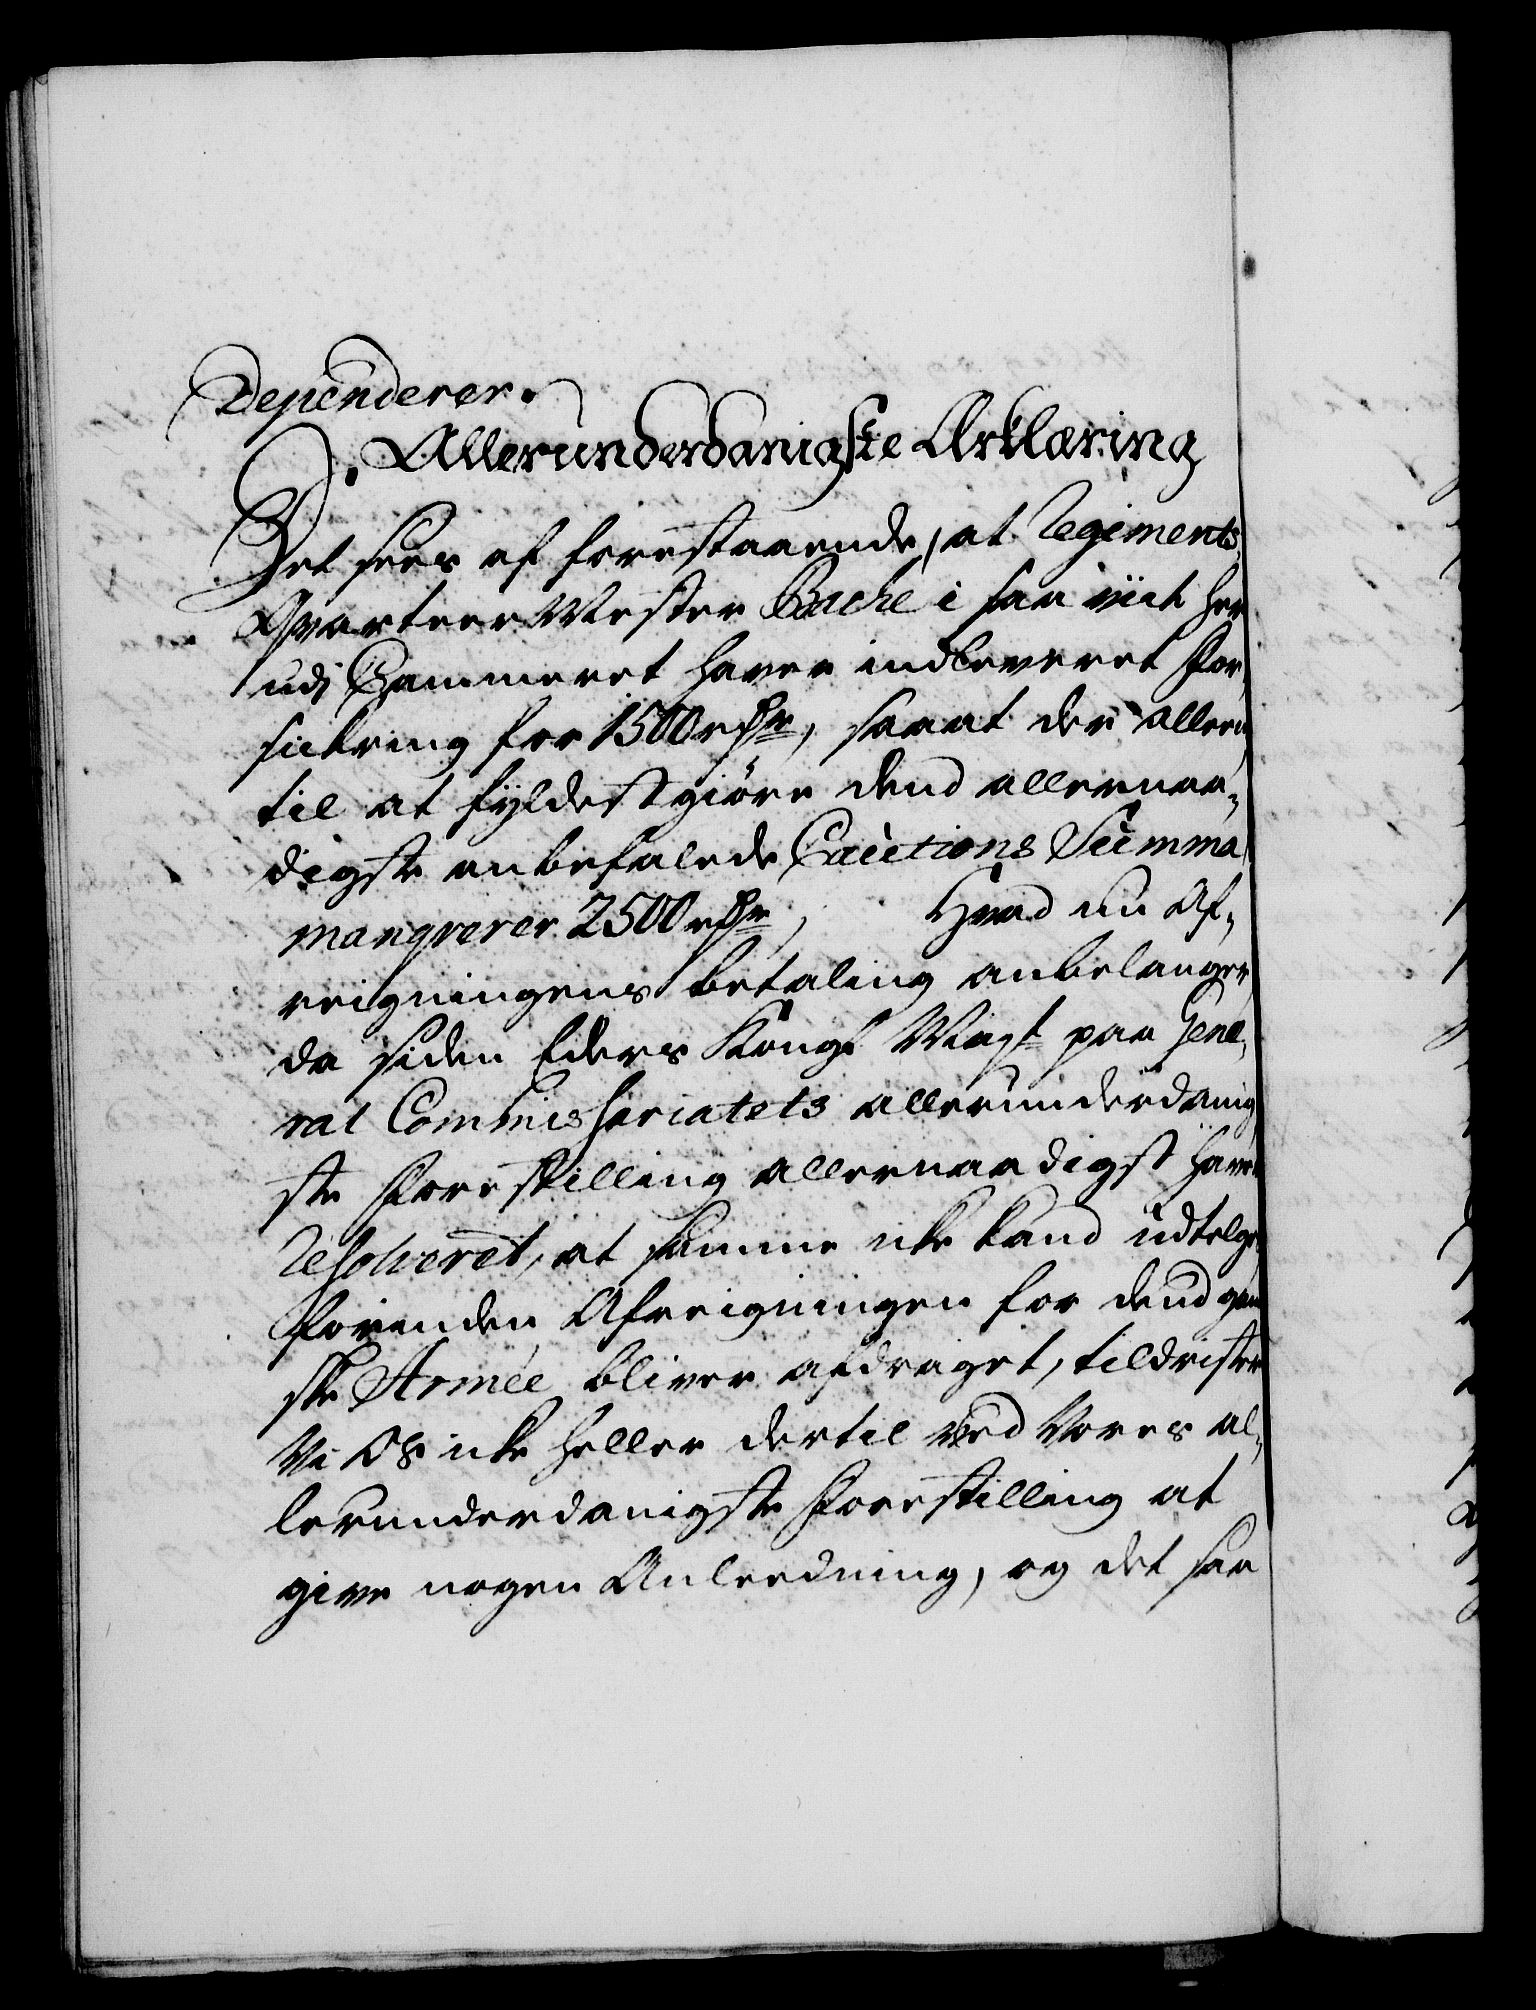 Dependerer.
Allerunderdanigste Erklæring
Det sees af forestaaende, at Regiments
Qvarteer Mester Bache i saa viit her
udj Cammeret haver indleveret For,
sickring for 1500 rdr, saa at der alleene
til at fyldestgiøre dend allernaa,
digste anbefalede Cautions Summa
manqverer 2500 rdr, Hvad nu Af,
reigningens betaling anbelanger
da siden Eders Kongl Mayt paa Gene,
ral Commissariatets allerunderdanig,
ste Forestilling allernaadigst haver
Resolveret, at samme icke kand udtelges
førinden Afreigningen for dend gand
ske Armée bliver afdraget, tildrister
Vi Os icke heller dertil ved Vores al,
lerunderdanigste Forestilling at
give nogen Anleedning, og det saa